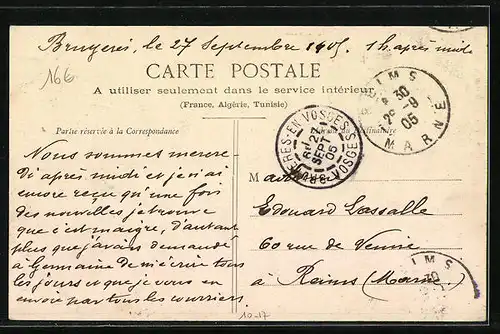 Bruyeres, le 27 Septembre 1905. 1 h après midi
166
CARTE POSTALE
A utiliser seulement dans le service intérieur
(France, Algérie, Tunisie)
Partie réservée à la Correspondance
du Destinataire
REIMS
30
28-9
05
MARNE
BRUYERES-EN-VOSGES
27
SEPT
05
VOSGES
Nous sommes mercre-
di après midi et je n'ai
encore reçu qu'une fois
des nouvelles, je trouve
que c'est maigre, d'autant
plus que j'avais demandé
à Germaine de m'écrire tous
les jours et que je vous en
envoie par tous les courriers.
M
Edouard Lassalle
60 rue de Venise
à Reims (Marne)
IMS
30
10-17